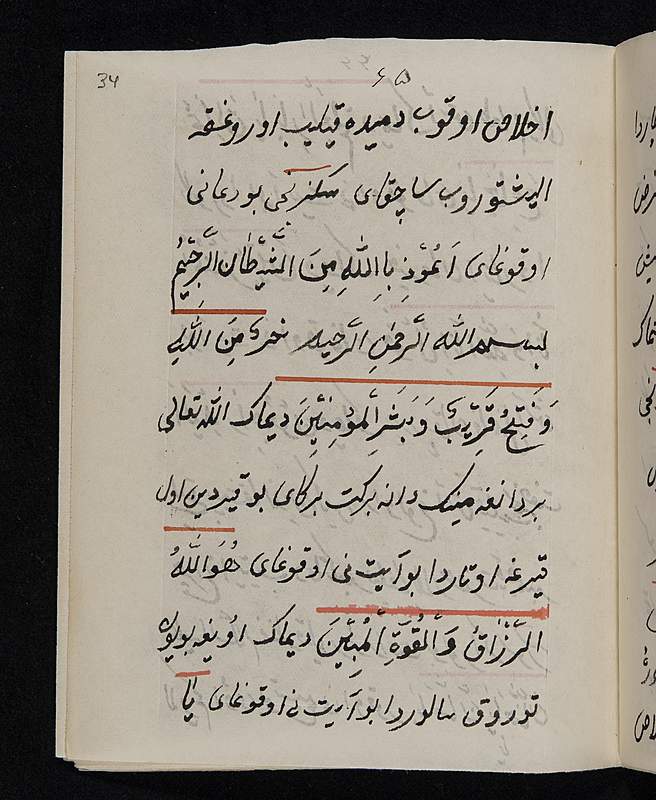 34
۶۵
اخلاص اوقوب دمیده قیلیب اوروغقه
الیشتوروب ساچقای سکزنجی بو دعانی
اوقوغای اَعُوْذِ بِاالله مِنَ الشَّیْطَانِ الرَّجِیْمُ
بسم الله الرَّحْمٰنِ الرَّحیم نصر مِنَ اللهِ
وَفَتْحُ قَرِیْبُ وَبَشَّرِ الْمُؤمِنِیْنَ دیماک الله تعالی
بر دانغه مینک دانه برکت برکای بو قیردین اول
قیرغه اوتاردا بو آیت نی اوقوغای هُوَاللهُ
الرَّزَّاقُ وَالْقُوَّةِ الْمُبِیْنَ دیماک اویغه بویوک
توروق سالوردا بو آیت نی اوقوغای یا